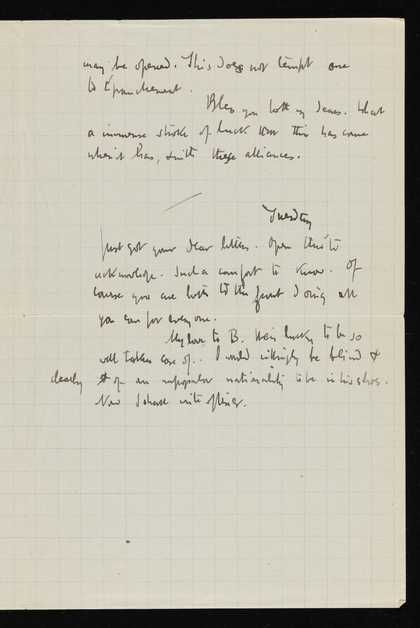 may be opened. This does not tempt one
to épanchement.
Bless you both my dears. What
a immense stroke of luck that this has come
when it has, with these alliances.
Tuesday
Just got your dear letters. Open this to
acknowledge. Such a comfort to know. Of
course you are both to the front doing all
you can for everyone.
My love to B. He is lucky to be so
well taken care of. I would willingly be blind &
deaf & of an unpopular nationality to be in his shoes.
Now I shall write oftener.